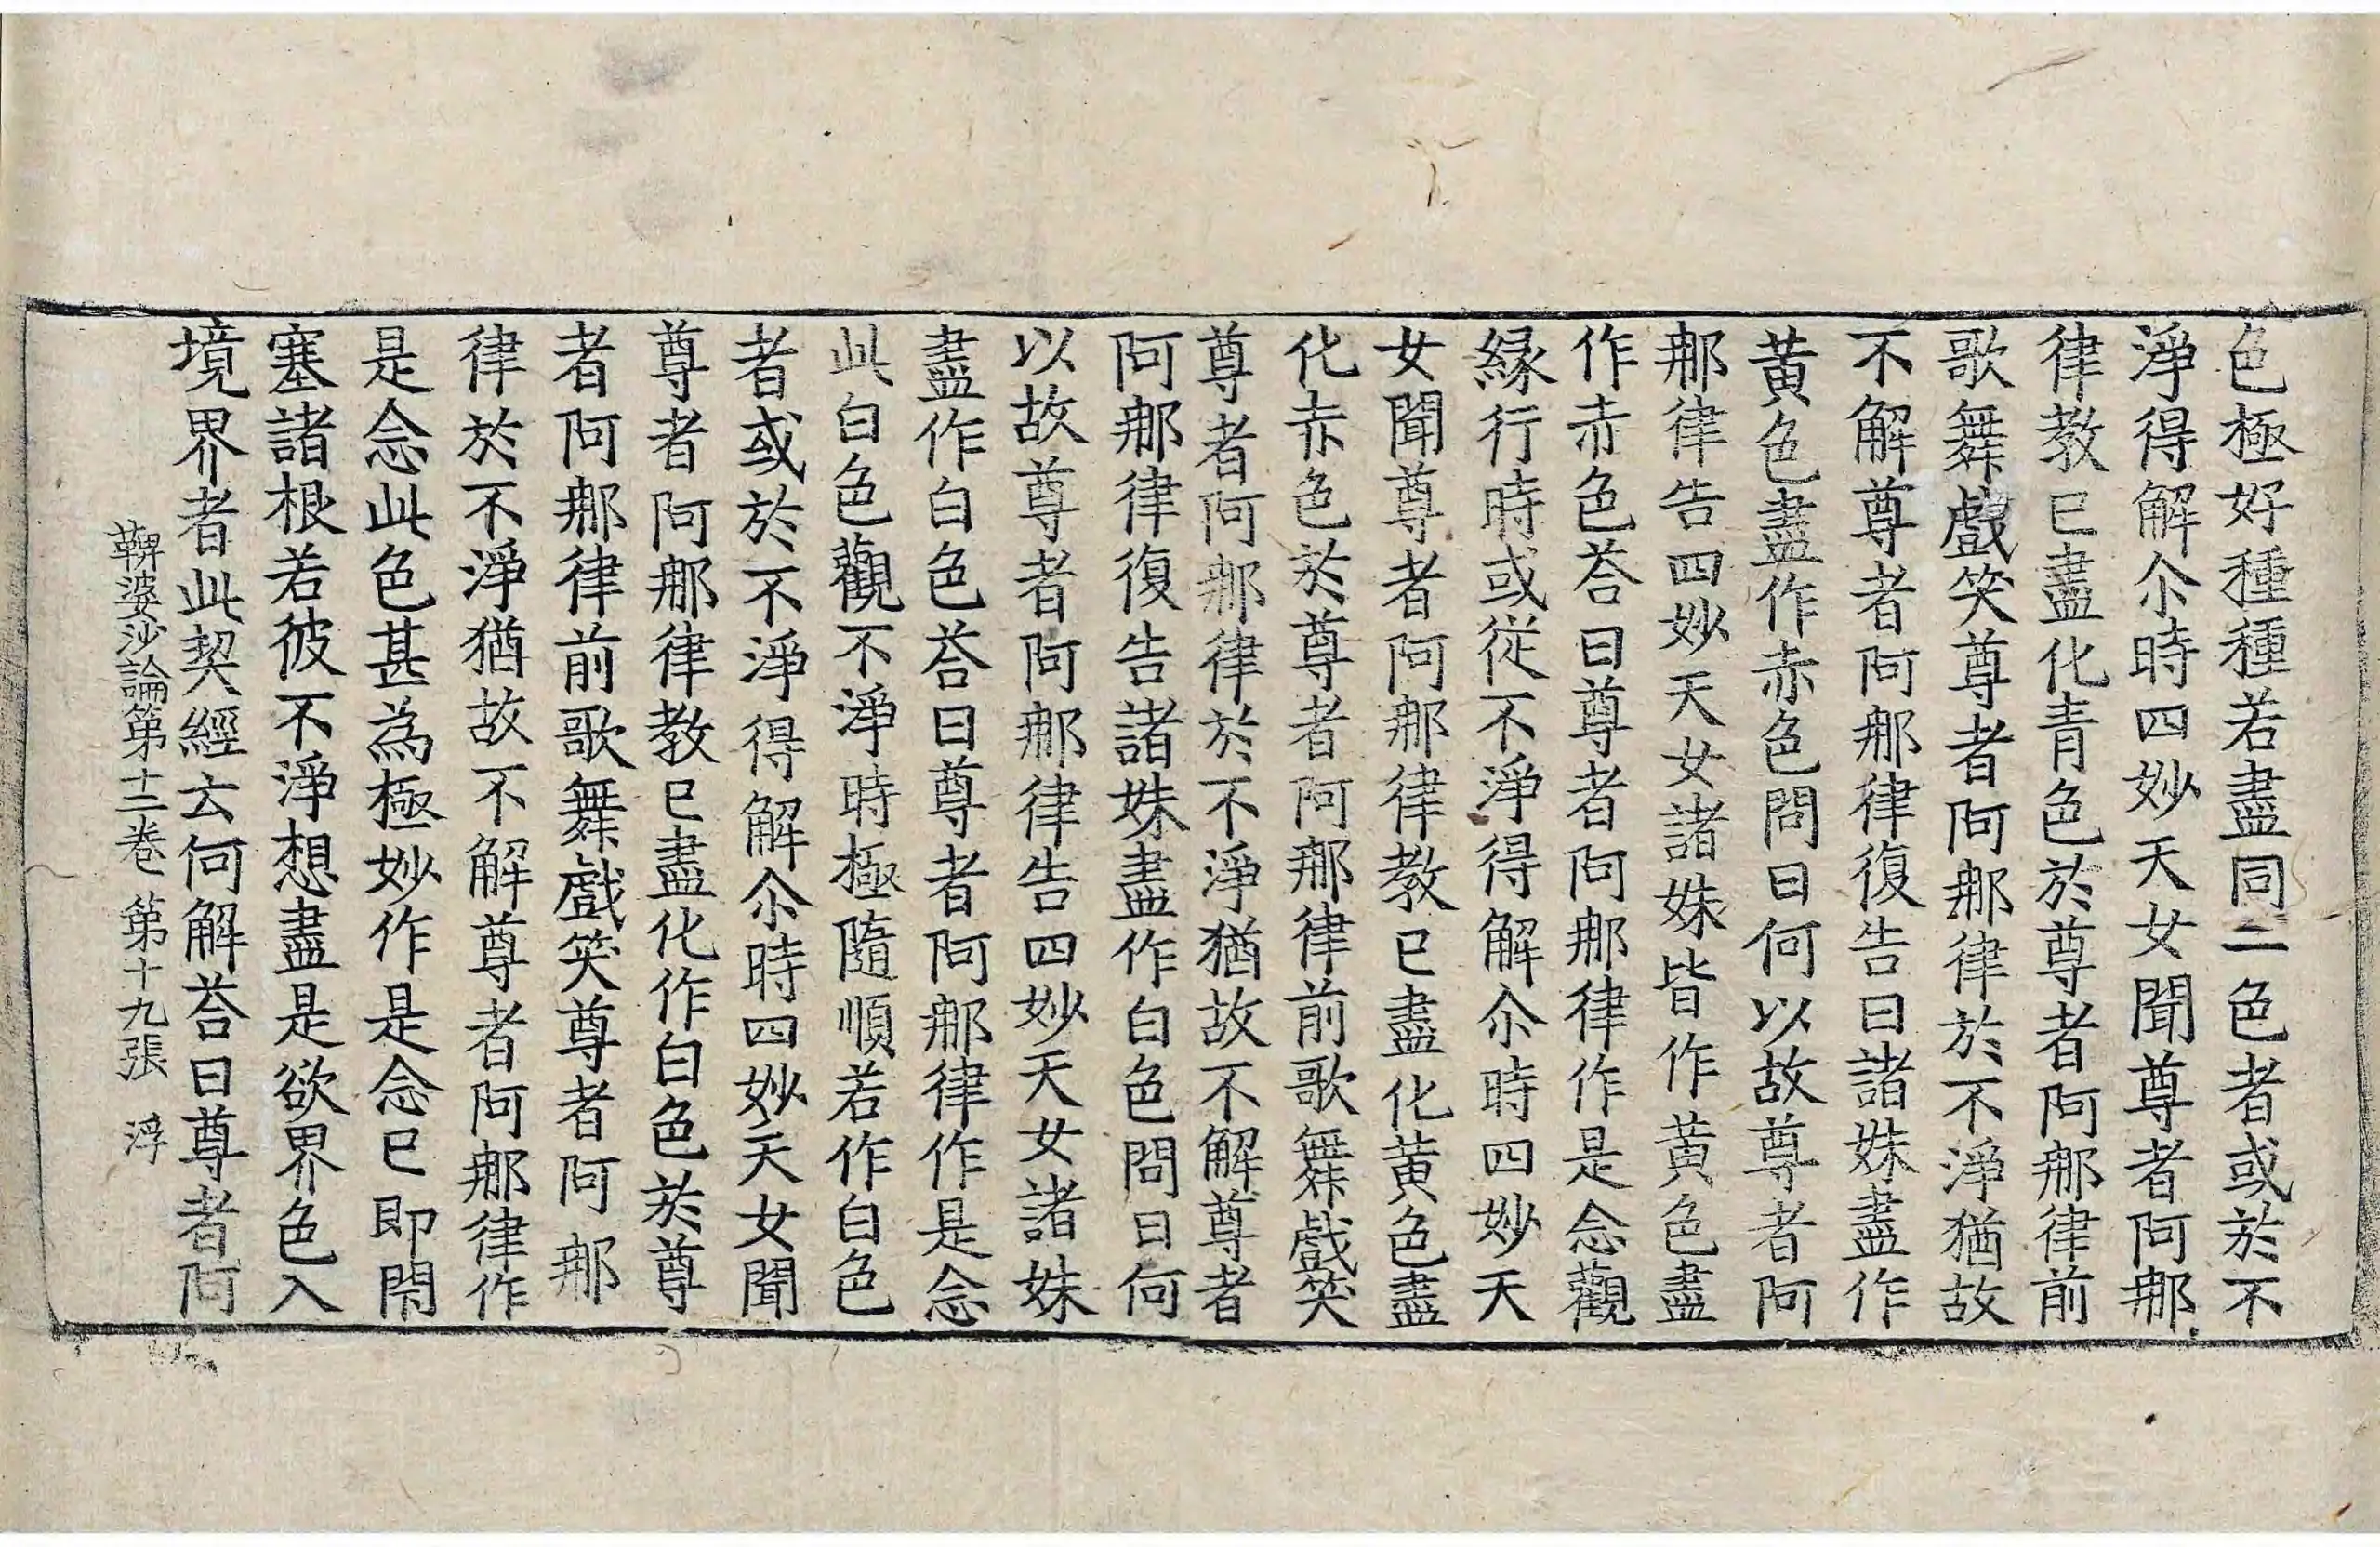 色極好種種若盡同一色者或於不
淨得解尒時四妙天女聞尊者阿那
律教已盡化青色於尊者阿那律前
歌舞戲笑尊者阿那律於不淨猶故
不解尊者阿那律復告曰諸姝盡作
黃色盡作赤色問曰何以故尊者阿
那律告四妙天女諸姝皆作黃色盡
作赤色荅曰尊者阿那律作是念觀
緣行時或從不淨得解尒時四妙天
女聞尊者阿那律教已盡化黃色盡
化赤色於尊者阿那律前歌舞戲笑
尊者阿那律於不淨猶故不解尊者
阿那律復告諸姝盡作白色問曰何
以故尊者阿那律告四妙天女諸姝
盡作白色荅曰尊者阿那律作是念
此白色觀不淨時極隨順若作白色
者或於不淨得解尒時四妙天女聞
尊者阿那律教已盡化作白色於尊
者阿那律前歌舞戲笑尊者阿那
律於不淨猶故不解尊者阿那律作
是念此色甚為極妙作是念已即閇
塞諸根若彼不淨想盡是欲界色入
境界者此契經云何解荅曰尊者阿
鞞婆沙論第十二卷 第十九張 浮